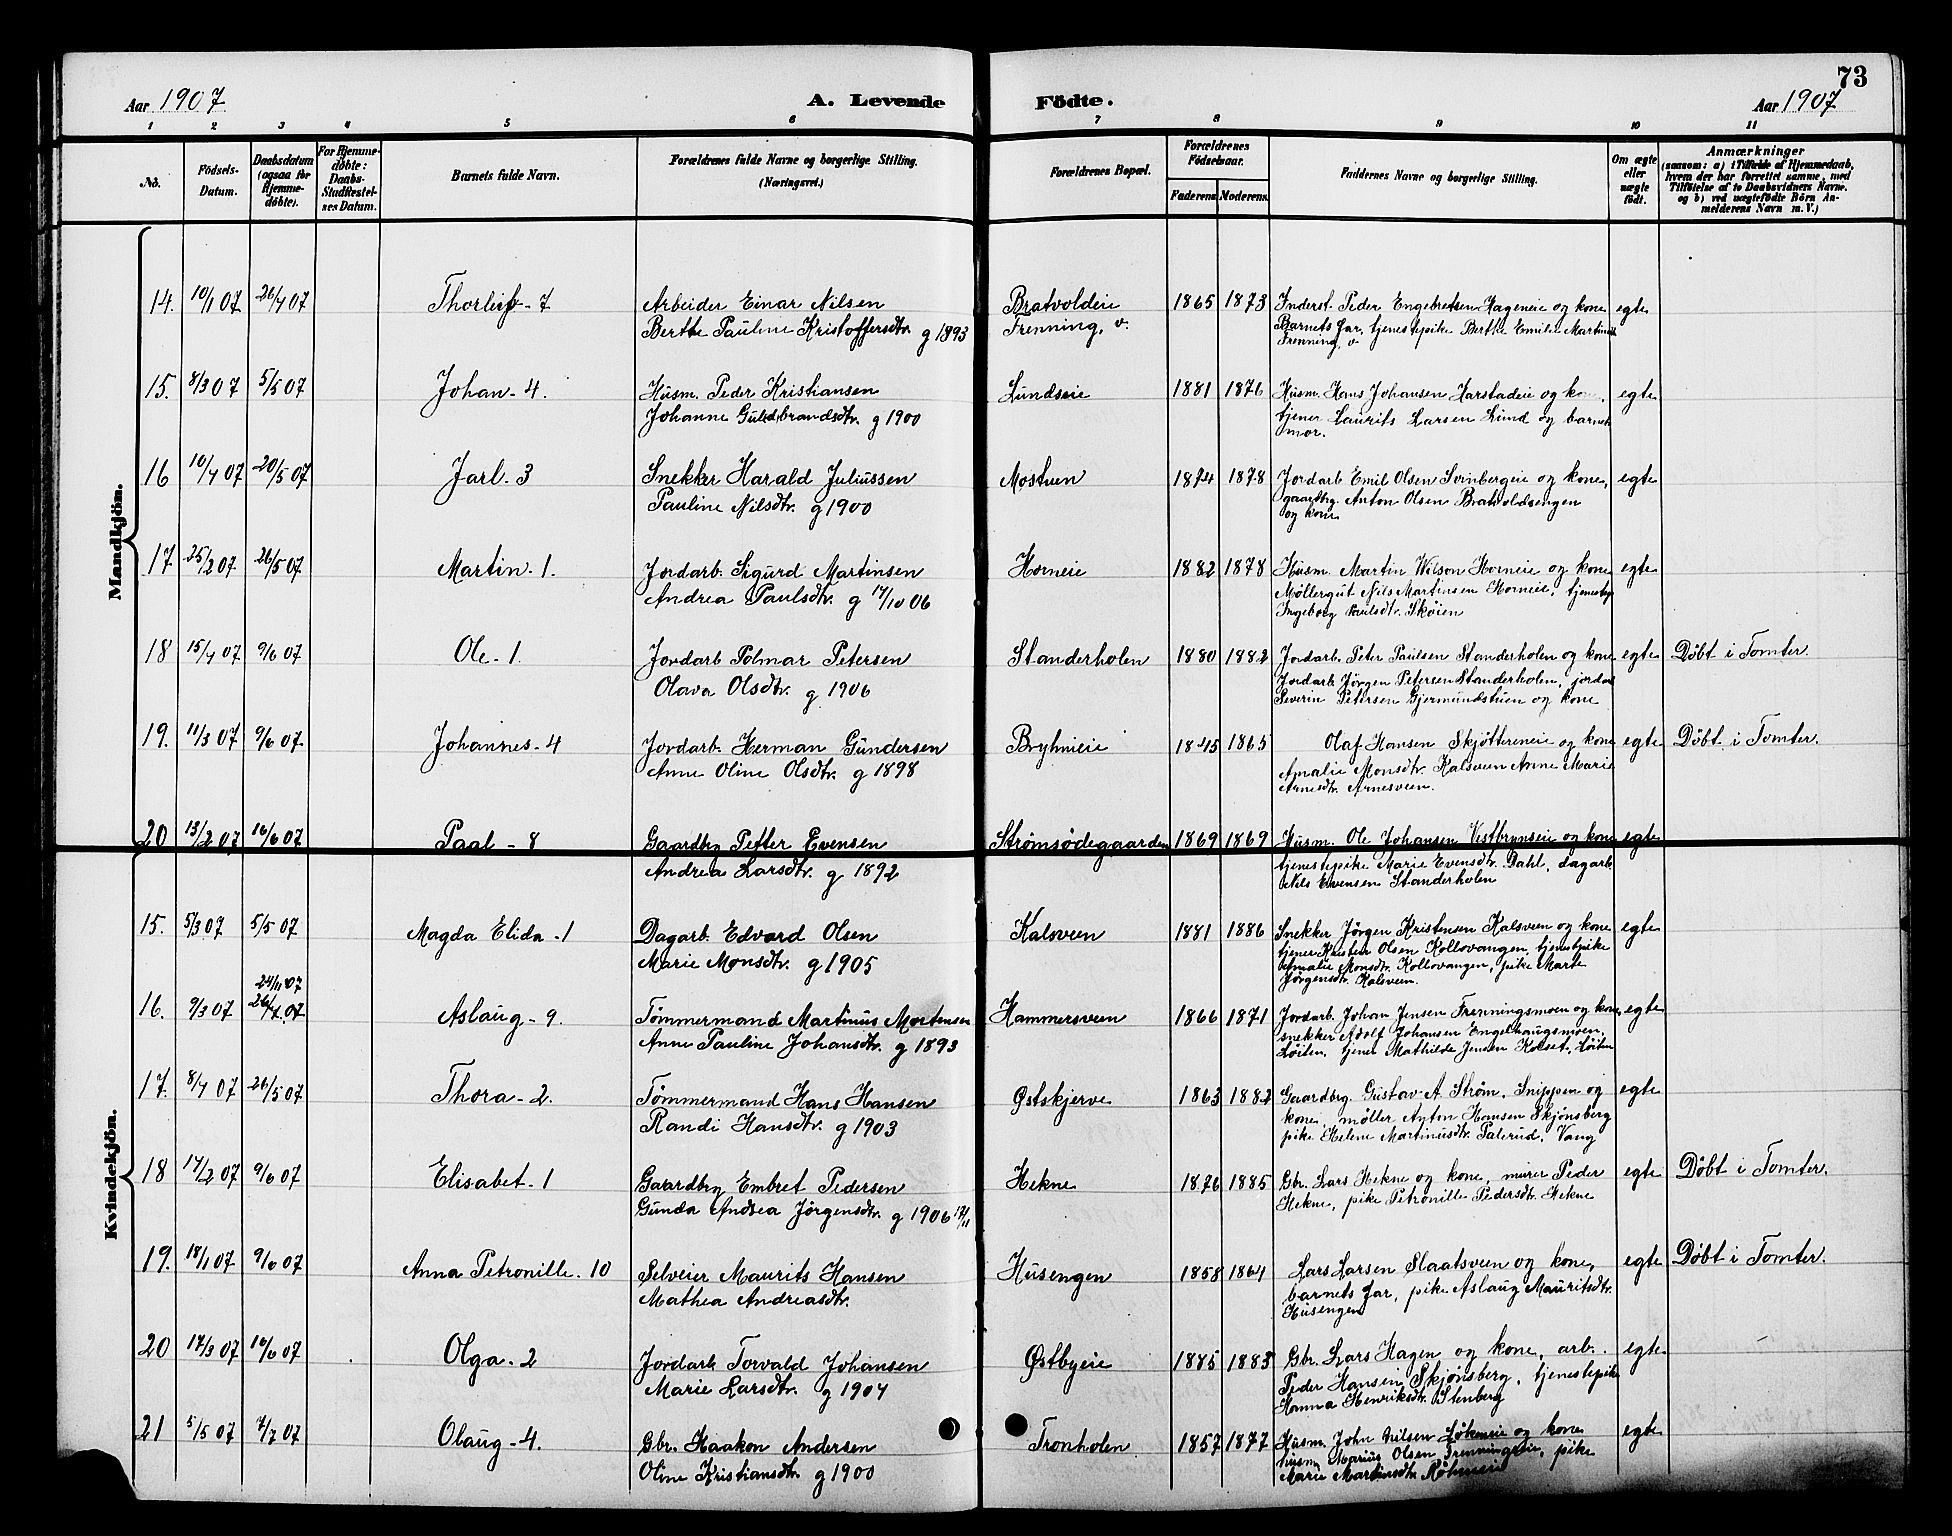 73
Aar 1907
A. Levende Födte.
Aar 1907
1 2 3 4 5 6 7 8 9 10 11
No.
Födsels-Datum.
Daabsdatum (ogsaa for Hjemme-döbte).
For Hjemme-döbte: Daabs-Stadfæstel-ses Datum.
Barnets fulde Navn.
Forældrenes fulde Navne og borgerlige Stilling.
(Næringsvei.)
Forældrenes Bopæl.
Forældrenes Födselsaar.
Faderens. Moderens.
Faddernes Navne og borgerlige Stilling.
Om ægte eller uægte födt.
Anmærkninger
(saasom: a) i Tilfælde af Hjemmedaab, hvem der har forrettet samme, med Tilföielse af to Daabsvidners Navne. og b) ved uægtefödte Börn An-melderens Navn m. V.)
Mandkjön.
14. 10/1 07 26/4 07 Thorleif - 7 Arbeider Einar Nilsen Bratvoldeie 1865 1873 Inderst. Peder Engebretsen Hageneie og kone egte
Berthe Pauline Kristoffersdtr. g 1893 Frenning, v. Barnets far, tjenestepike Berthe Emilie Martins
Frenning, v.
15. 8/3 07 5/5 07 Johan - 4. Husm. Peder Kristiansen Lundseie 1881 1876 Husm. Hans Johansen Harstadeie og kone, egte
Johanne Guldbrandsdtr. g 1900 tjener Laurits Larsen Lund og barnets
mor.
16 10/4 07 20/5 07 Jarl - 3 Snekker Harald Juliussen Mostuen 1874 1878 Jordarb Emil Olsen Svinbergeie og kone, egte
Pauline Nilsdtr. g 1900 gaardbrg. Anton Olsen Bratvoldsengen
og kone
17. 25/2 07 26/5 07 Martin - 1. Jordarb. Sigurd Martinsen Horneie 1882 1878 Husm. Martin Wilson Horneie og kone egte
Andrea Paulsdtr. g 17/10 06 Møllergut Nils Martinsen Horneie, tjenestep
Ingeborg Paulsdtr. Skøien
18 15/4 07 9/6 07 Ole - 1. Jordarb Polmar Petersen Standerholen 1880 1882 Jordarb. Peter Paulsen Standerholen og kone egte Döbt i Tomter.
Olava Olsdtr. g 1906 Jordarb. Jørgen Petersen Standerholen, jordarb
Severin Petersen Gjermundstuen og kone
19. 11/3 07 9/6 07 Johannes - 4 Jordarb. Herman Gundersen Bryhnieie 1845 1865 Olaf Hansen Skjøttereneie og kone egte Döbt i Tomter.
Anne Oline Olsdtr. g 1898 Amalie Monsdtr. Kalsveen Anne Marie
Arnesdtr. Arnesveen.
20 13/2 07 16/6 07 Paal - 8 Gaardbrg Petter Evensen Strømsødegaarden 1869 1869 Husm. Ole Johansen Vestbrynseie og kone egte
Andrea Larsdtr. g 1892 tjenestepike Marie Evensdtr. Dahl, dagarb.
Nils Evensen Standerholen
Kvindekjön.
15. 5/3 07 5/5 07 Magda Elida - 1 Dagarb. Edvard Olsen Kalsveen 1881 1886 Snekker Jørgen Kristensen Kalsveen og kone egte
Marie Monsdtr. g 1905 tjener Kristian Olsen Kollovangen, tjenestpike
Amalie Monsdtr. Kollovangen, pike Marte
Jørgensdtr. Kalsveen.
24/11 07
16. 9/3 07 26/4 07 Aslaug - 9. Tømmermand Martinus Mortensen Hammersveen 1866 1871 Jordarb. Johan Jensen Frenningsmoen og kone, egte
Anne Pauline Johansdtr. g 1893 snekker Adolf Johansen Engelhaugsmoen,
Løiten, tjener Mathilde Jensen Kolset, Løiten
17. 8/4 07 26/5 07 Thora - 2. Tømmermand Hans Hansen Østskjerve 1863 1882 Gaardbrg. Gustav A. Strøm, Snippen og egte
Randi Hansdtr. g 1903 kone, møller Anton Hansen Skjønsberg
pike Helene Martinusdtr. Paterud, Vang
18 14/2 07 9/6 07 Elisabet - 1 Gaardbrg Embret Pedersen Hekne 1876 1885 Gbr. Lars Hekne og kone, murer Peder egte Döbt i Tomter.
Gunda Andrea Jørgensdtr. g 1906 Hekne, pike Petronille Pedersdtr. Hekne
19. 18/1 07 9/6 07 Anna Petronille - 10 Selveier Maurits Hansen Husengen 1858 1864 Lars Larsen Slaatsveen og kone, egte Döbt i Tomter.
Mathea Andreasdtr. barnets far, pike Aslaug Mauritsdtr.
Husengen
20 17/3 07 16/6 07 Olga - 2 Jordarb Torvald Johansen Østbyeie 1885 1883 Gbr. Lars Hagen og kone, arb. egte
Marie Larsdtr. g 1904 Peder Hansen Skjønsberg, tjenestepike
Hanna Henriksdtr. Stenberg
21 5/5 07 7/7 07 Olaug - 4. Gbr. Haakon Andersen Tronholen 1857 1877 Husm. John Nilsen Løkneie og kone egte
Oline Kristiansdtr. g 1900 husm. Marius Olsen Frenningseie, pike
Marie Martinsdtr